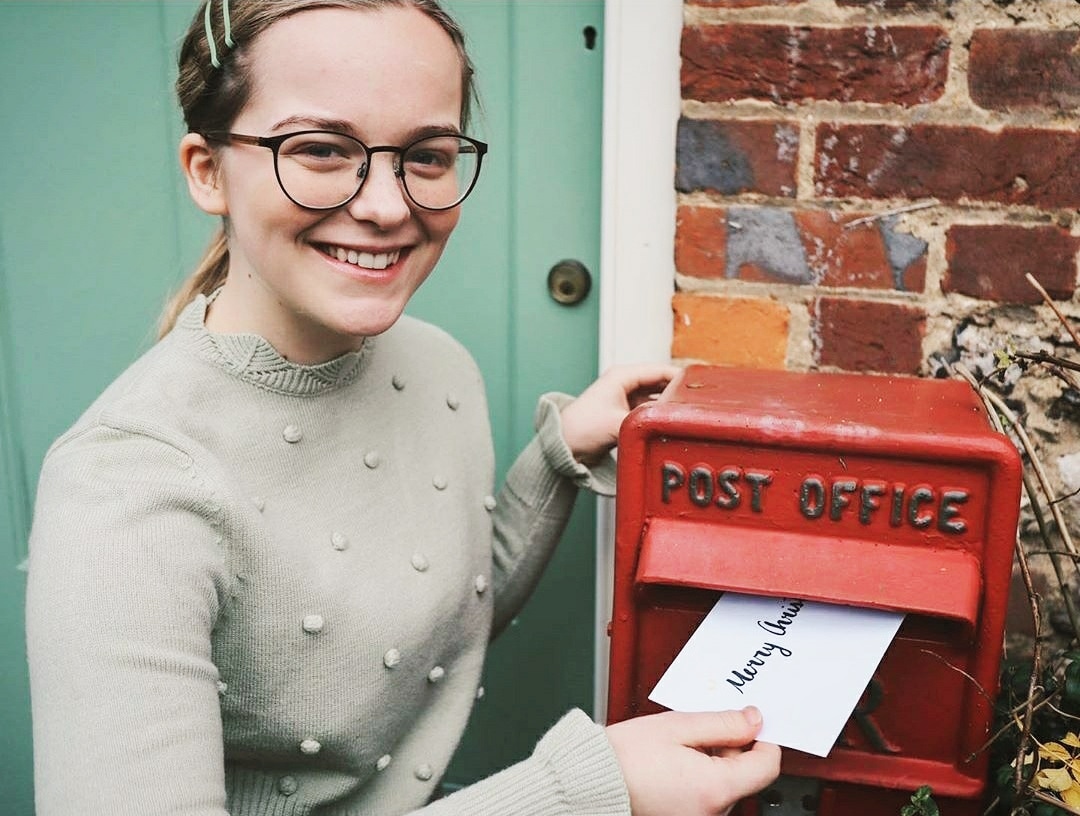 POST OFFICE
Merry Chris